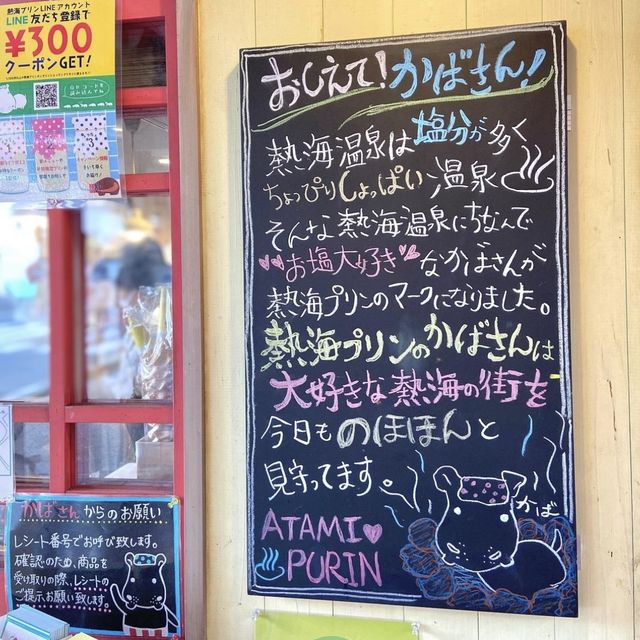 熱海プリンLINEアカウント
LINE 友だち登録で
¥300
クーポンGET!
QRコードを
読み込んでね
1
2
3
おしえて!かばさん!
熱海温泉は塩分が多く
ちょっぴりしょっぱい温泉
そんな熱海温泉にちなんで
お塩大好きなかばさんが
熱海プリンのマークになりました。
熱海プリンのかばさんは
大好きな熱海の街を
今日ものほほんと
見守ってます。
かば
ATAMI
PURIN
かばさんからのお願い
レシート番号でお呼び致します。
確認のため、商品を
受け取りの際、レシートの
ご提示お願い致します。